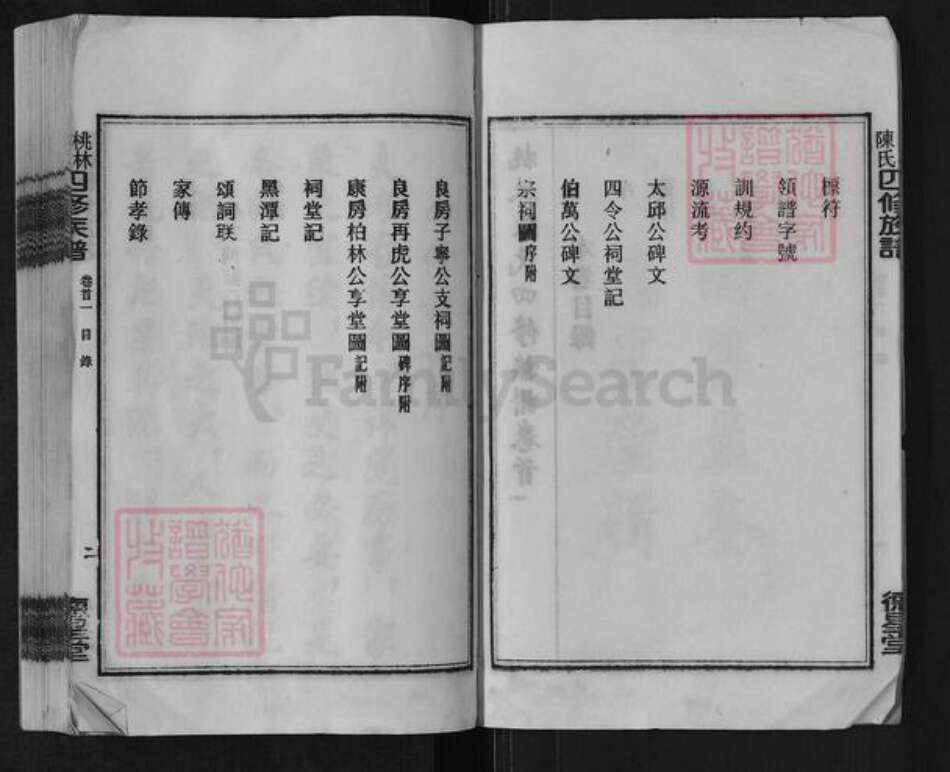 陳氏四修族譜
標符
領譜字號
訓規約
源流考
太邱公碑文
四令公祠堂記
伯萬公碑文
宗祠圖序附
德星堂
良房子寧公支祠圖記附
良房再虎公享堂圖碑序附
康房柏林公享堂圖記附
祠堂記
黑潭記
頌詞联
家傳
節孝錄
桃林四修族譜
卷首一 目錄
二
德星堂
FamilySearch